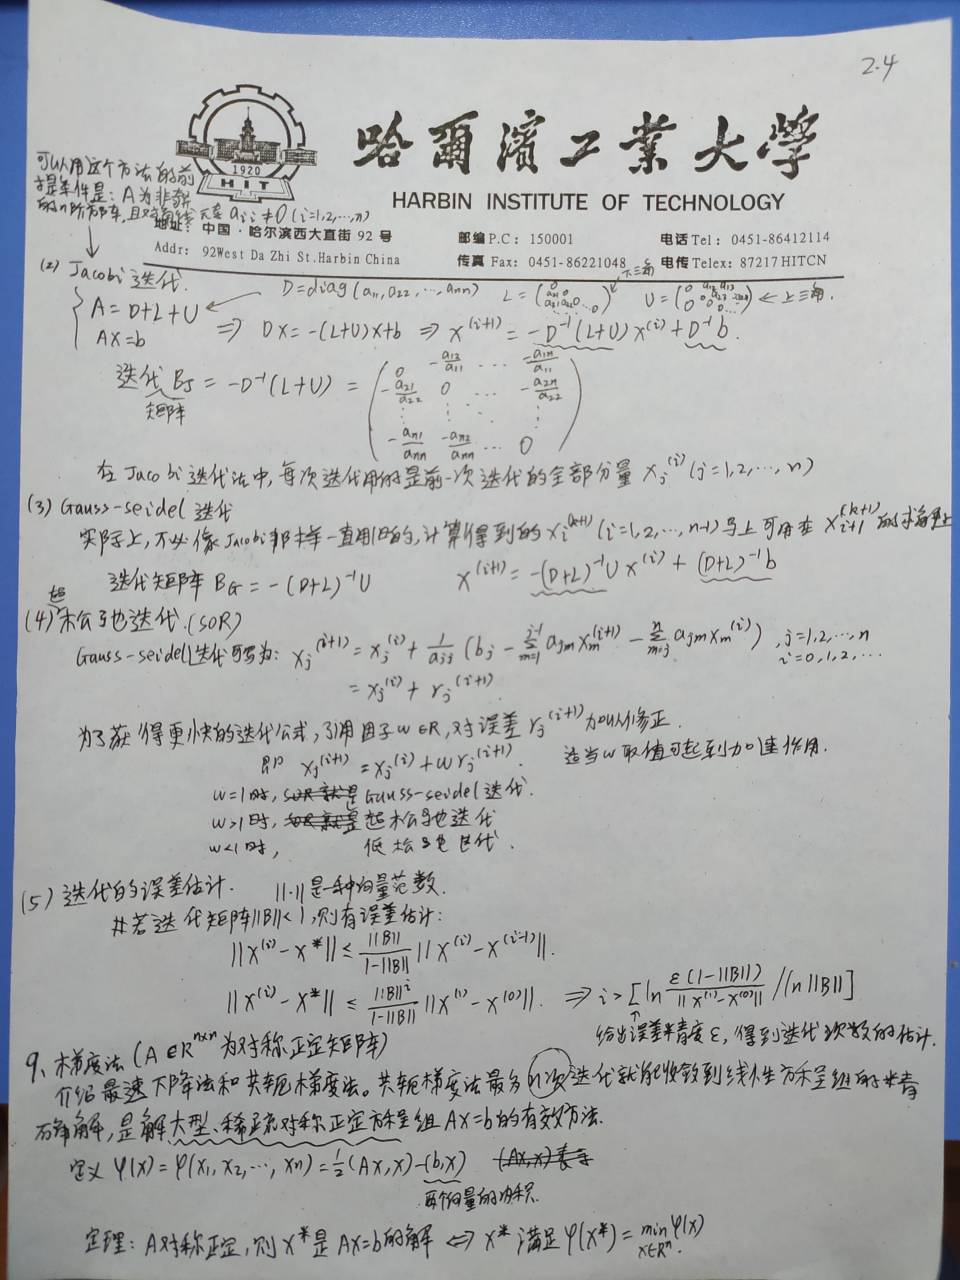 2.4
1920
HIT
哈爾濱工業大學
HARBIN INSTITUTE OF TECHNOLOGY
地址: 中国·哈尔滨西大直街 92 号 邮编 P.C: 150001 电话 Tel: 0451-86412114
Addr: 92West Da Zhi St.Harbin China 传真 Fax: 0451-86221048 电传 Telex: 87217 HITCN
可以用这个方法的前
提条件是: A为非奇异
的n阶方阵, 且对角线元素 aii≠0 (i=1,2,…,n)
(2) Jacobi 迭代.
D=diag(a11,a22,…,ann) L= U= ←上三角. 下三角
A=D+L+U
AX=b
⇒ DX=-(L+U)X+b ⇒ X^(i+1) = -D^-1(L+U)X^(i)+D^-1 b.
迭代 BJ = -D^-1(L+U) = (0 -a12/a11 … -a1n/a11
矩阵
-a21/a22 0 … -a2n/a22
⋮ ⋮ ⋮
-an1/ann -an2/ann … 0)
在Jacobi迭代法中,每次迭代用的是前一次迭代的全部分量 xj^(i) (j=1,2,…,n)
(3) Gauss-seidel 迭代
实际上,不必像Jacobi那样一直用旧的,计算得到的 xi^(k+1) (i=1,2,…,n-1)马上可用在 xi+1^(k+1) 的求解上
迭代矩阵 BG = -(D+L)^-1 U X^(i+1) = -(D+L)^-1 U X^(i) + (D+L)^-1 b
(4) 超松弛迭代.(SOR)
Gauss-seidel迭代可写为: xj^(i+1) = xj^(i) + 1/ajj (bj - Σ_{m=1}^{j-1} ajm xm^(i+1) - Σ_{m=j}^{n} ajm xm^(i)) , j=1,2,…,n
i=0,1,2,…
= xj^(i) + rj^(i+1).
为了获得更快的迭代公式,引用因子w∈R,对误差 rj^(i+1) 加以修正.
即 xj^(i+1) = xj^(i) + w rj^(i+1). 适当w取值可起到加速作用.
w=1时, Gauss-seidel 迭代.
w>1时, 超松弛迭代
w<1时, 低松弛迭代.
(5) 迭代的误差估计. ||·||是一种向量范数.
若迭代矩阵||B||<1,则有误差估计:
||X^(i)-X*|| ≤ ||B||/(1-||B||) ||X^(i)-X^(i-1)||.
||X^(i)-X*|| ≤ ||B||^i/(1-||B||) ||X^(1)-X^(0)||. ⇒ i>[ln ε(1-||B||)/||X^(1)-X^(0)|| / ln||B||]
给出误差精度ε,得到迭代次数的估计.
9、梯度法(A∈R^n×n为对称正定矩阵)
介绍最速下降法和共轭梯度法。共轭梯度法最多n次迭代就能收敛到线性方程组的精
确解,是解大型、稀疏对称正定方程组AX=b的有效方法.
定义 φ(x)=φ(x1,x2,…,xn)=½(Ax,x)-(b,x) (Ax,x)表示
两个向量的内积.
定理: A对称正定,则X*是AX=b的解 ⇔ X*满足φ(X*)=min φ(x)
x∈R^n.